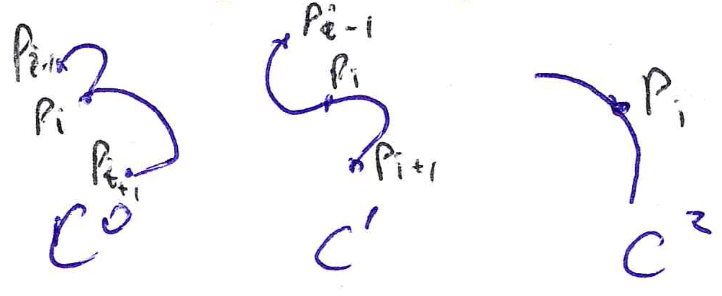 P_{i-1} P_i P_{i+1} C^0
P_{i-1} P_i P_{i+1} C^1
P_i C^2